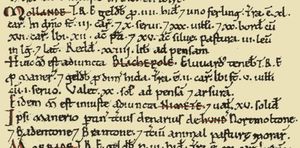 MOLLANDE. T.R.E. geldb̄ p̄ .iiii. hid̄ 7 uno ferling. Tr̄a. ē .xl.
car̄. In dn̄io st̄ .iii. car̄ 7 x. serui. 7 xxx. uilli 7 xx. bord̄ cū
xvi. car̄. Ibi .xii. ac̄ p̄ti. 7 xv. ac̄ siluæ. Pastura .iii. leuū
in lḡ 7 lat̄. Redd̄ .xxiiii. lib̄ ad pensam.
Huic M̄ est adiuncta BLACHEPOLE. Eluuard teneb̄ T.R.E.
p maner̄ 7 geldb̄ p dim̄ hida. Tr̄a ē .iii. car̄. Ibi st̄ .v. uilli
cū .ii. seruo. Valet .xx. sol̄ ad pensā 7 arsurā.
Eidem M̄ est iniuste adiuncta NIMETE. 7 ual̄ .xv. solid̄.
Ipsi manerio ptin̄ tcius denarius de HUND Nortmoltone
7 Badentone 7 Brantone. 7 tciū animal pasturæ morar̄.